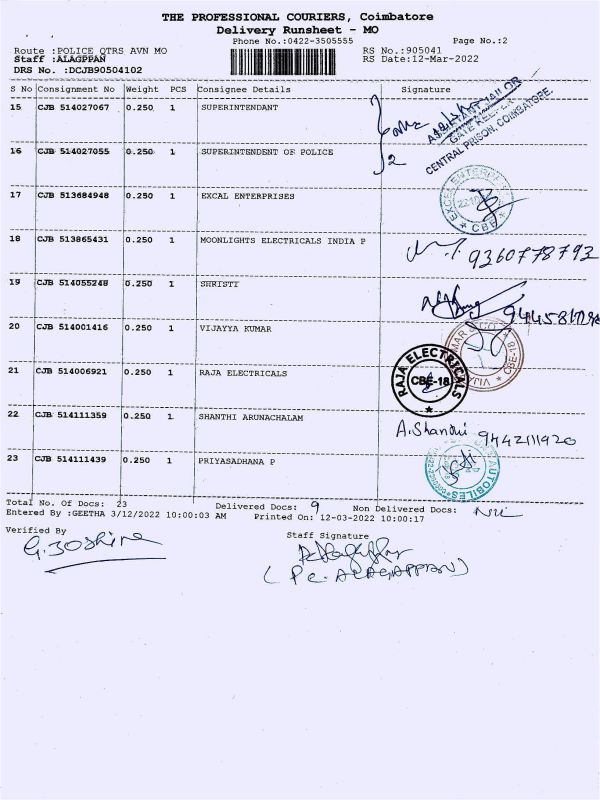 THE PROFESSIONAL COURIERS, Coimbatore
Delivery Runsheet - MO
Phone No.:0422-3505555 Page No.:2
Route :POLICE QTRS AVN MO RS No.:905041
Staff :ALAGPPAN RS Date:12-Mar-2022
DRS No. :DCJB90504102
S No Consignment No Weight PCS Consignee Details Signature
15 CJB 514027067 0.250 1 SUPERINTENDANT
ASSISTANT JAILOR
GATE KEEPER
CENTRAL PRISON, COIMBATORE.
16 CJB 514027055 0.250 1 SUPERINTENDENT OF POLICE 2
17 CJB 513684948 0.250 1 EXCAL ENTERPRISES
EXCEL ENTERPRISES CBE
18 CJB 513865431 0.250 1 MOONLIGHTS ELECTRICALS INDIA P 9360778793
19 CJB 514055248 0.250 1 SHRISTI
20 CJB 514001416 0.250 1 VIJAYYA KUMAR
21 CJB 514006921 0.250 1 RAJA ELECTRICALS
RAJA ELECTRICALS CBE-18
22 CJB 514111359 0.250 1 SHANTHI ARUNACHALAM A.Shanthi 9442111920
23 CJB 514111439 0.250 1 PRIYASADHANA P
Total No. Of Docs: 23 Delivered Docs: 9 Non Delivered Docs: Nil
Entered By :GEETHA 3/12/2022 10:00:03 AM Printed On: 12-03-2022 10:00:17
Verified By Staff Signature
(P C. ALAGAPPAN)